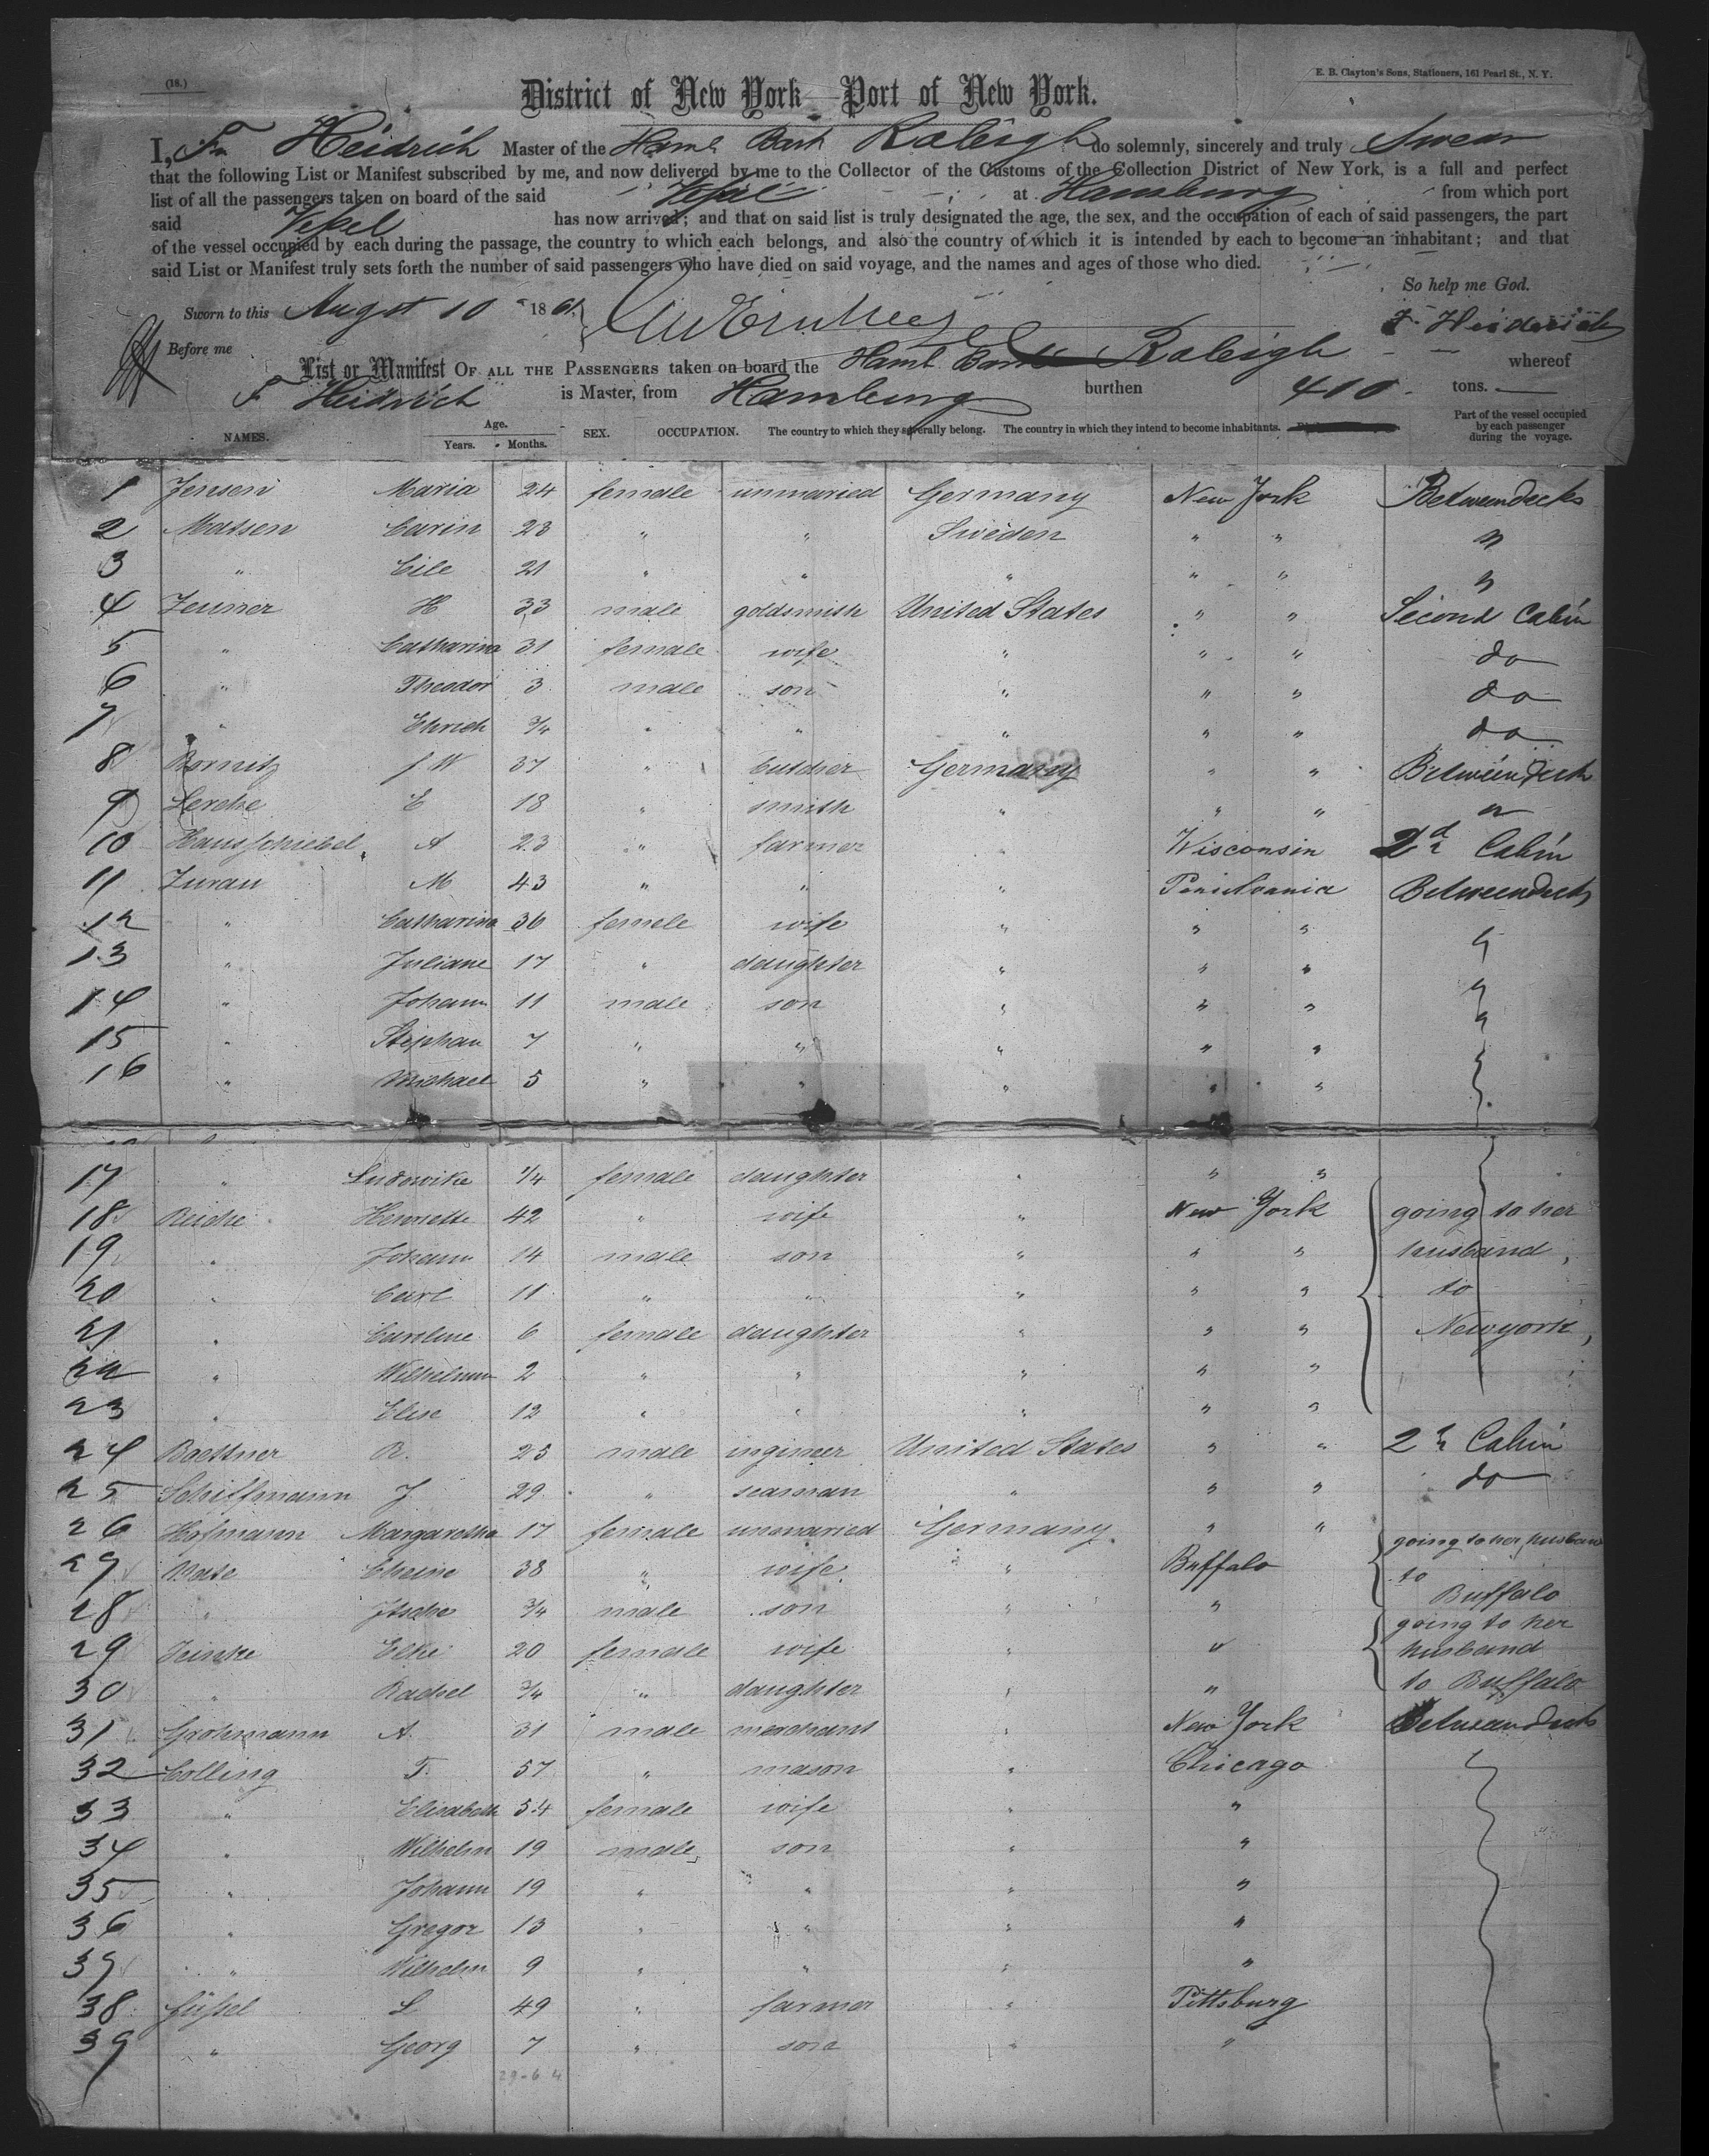 (18.)
E. B. Clayton's Sons, Stationers, 161 Pearl St., N. Y.
District of New York—Port of New York.
I, F. Heidrich Master of the Hamb. Bark Raleigh do solemnly, sincerely and truly Swear
that the following List or Manifest subscribed by me, and now delivered by me to the Collector of the Customs of the Collection District of New York, is a full and perfect
list of all the passengers taken on board of the said Vessel at Hamburg from which port
said Vessel has now arrived; and that on said list is truly designated the age, the sex, and the occupation of each of said passengers, the part
of the vessel occupied by each during the passage, the country to which each belongs, and also the country of which it is intended by each to become an inhabitant; and that
said List or Manifest truly sets forth the number of said passengers who have died on said voyage, and the names and ages of those who died.
So help me God.
Sworn to this August 10 1861
F. Heiderich
Before me
List or Manifest OF ALL THE PASSENGERS taken on board the Hamb. Bark Raleigh whereof
F Heidrich is Master, from Hamburg burthen 410 tons.
NAMES. Age. Years. Months. SEX. OCCUPATION. The country to which they severally belong. The country in which they intend to become inhabitants. Part of the vessel occupied by each passenger during the voyage.
1 Jensen Maria 24 female unmaried Germany New York Betweendecks
2 Matsen Carin 23 " " Sweden " " "
3 " Cile 21 " " " " " "
4 Zeuner H 33 male goldsmith United States " " Second Cabin
5 " Catharina 31 female wife " " " do
6 " Theodor 3 male son " " " do
7 " Ehrich 3/4 " " " " " do
8 Bornitz J W 37 " butcher Germany " " Betweendeck
9 Lerche E 18 " smith " " " "
10 Hausschiebel A 23 " farmer " Wisconsin 2d Cabin
11 Zuran M 43 " " " Pensilvania Betweendeck
12 " Catharina 36 femele wife " " " "
13 " Juliane 17 " daughter " " "
14 " Johann 11 male son " " " "
15 " Stephan 7 " " " " " "
16 " Michael 5 " " " " " "
17 " Ludowike 1/4 female daughter " " "
18 Reiche Henriette 42 " wife " New York going to her
19 " Johann 14 male son " " " husband,
20 " Carl 11 " " " " " to
21 " Caroline 6 female daughter " " " Newyork,
22 " Wilhelmm 2 " " " " "
23 " Elise 12 " " " " "
24 Boettner R. 25 male ingineer United States " " 2d Cabin
25 Schiffmann J 29 " seaman " " " do
26 Hofmann Margaretha 17 female unmaried Germany " "
27 Cheine 38 " wife " Buffalo going to her husband
to
28 " 3/4 male son " " Buffalo
29 Elke 20 female wife " " going to her husband
30 " Rachel 3/4 " daughter " " to Buffalo
31 Grohmann A. 31 male merchant " New York Betweendeck
32 Colling T. 57 " mason " Chicago
33 " Elisabeth 54 female wife " "
34 " Wilhelm 19 male son " "
35 " Johann 19 " " " "
36 " Gregor 13 " " " "
37 " Wilhelm 9 " " " "
38 Füssel L 49 " farmer " Pittsburg
39 " Georg 7 " son " "
29-6 4